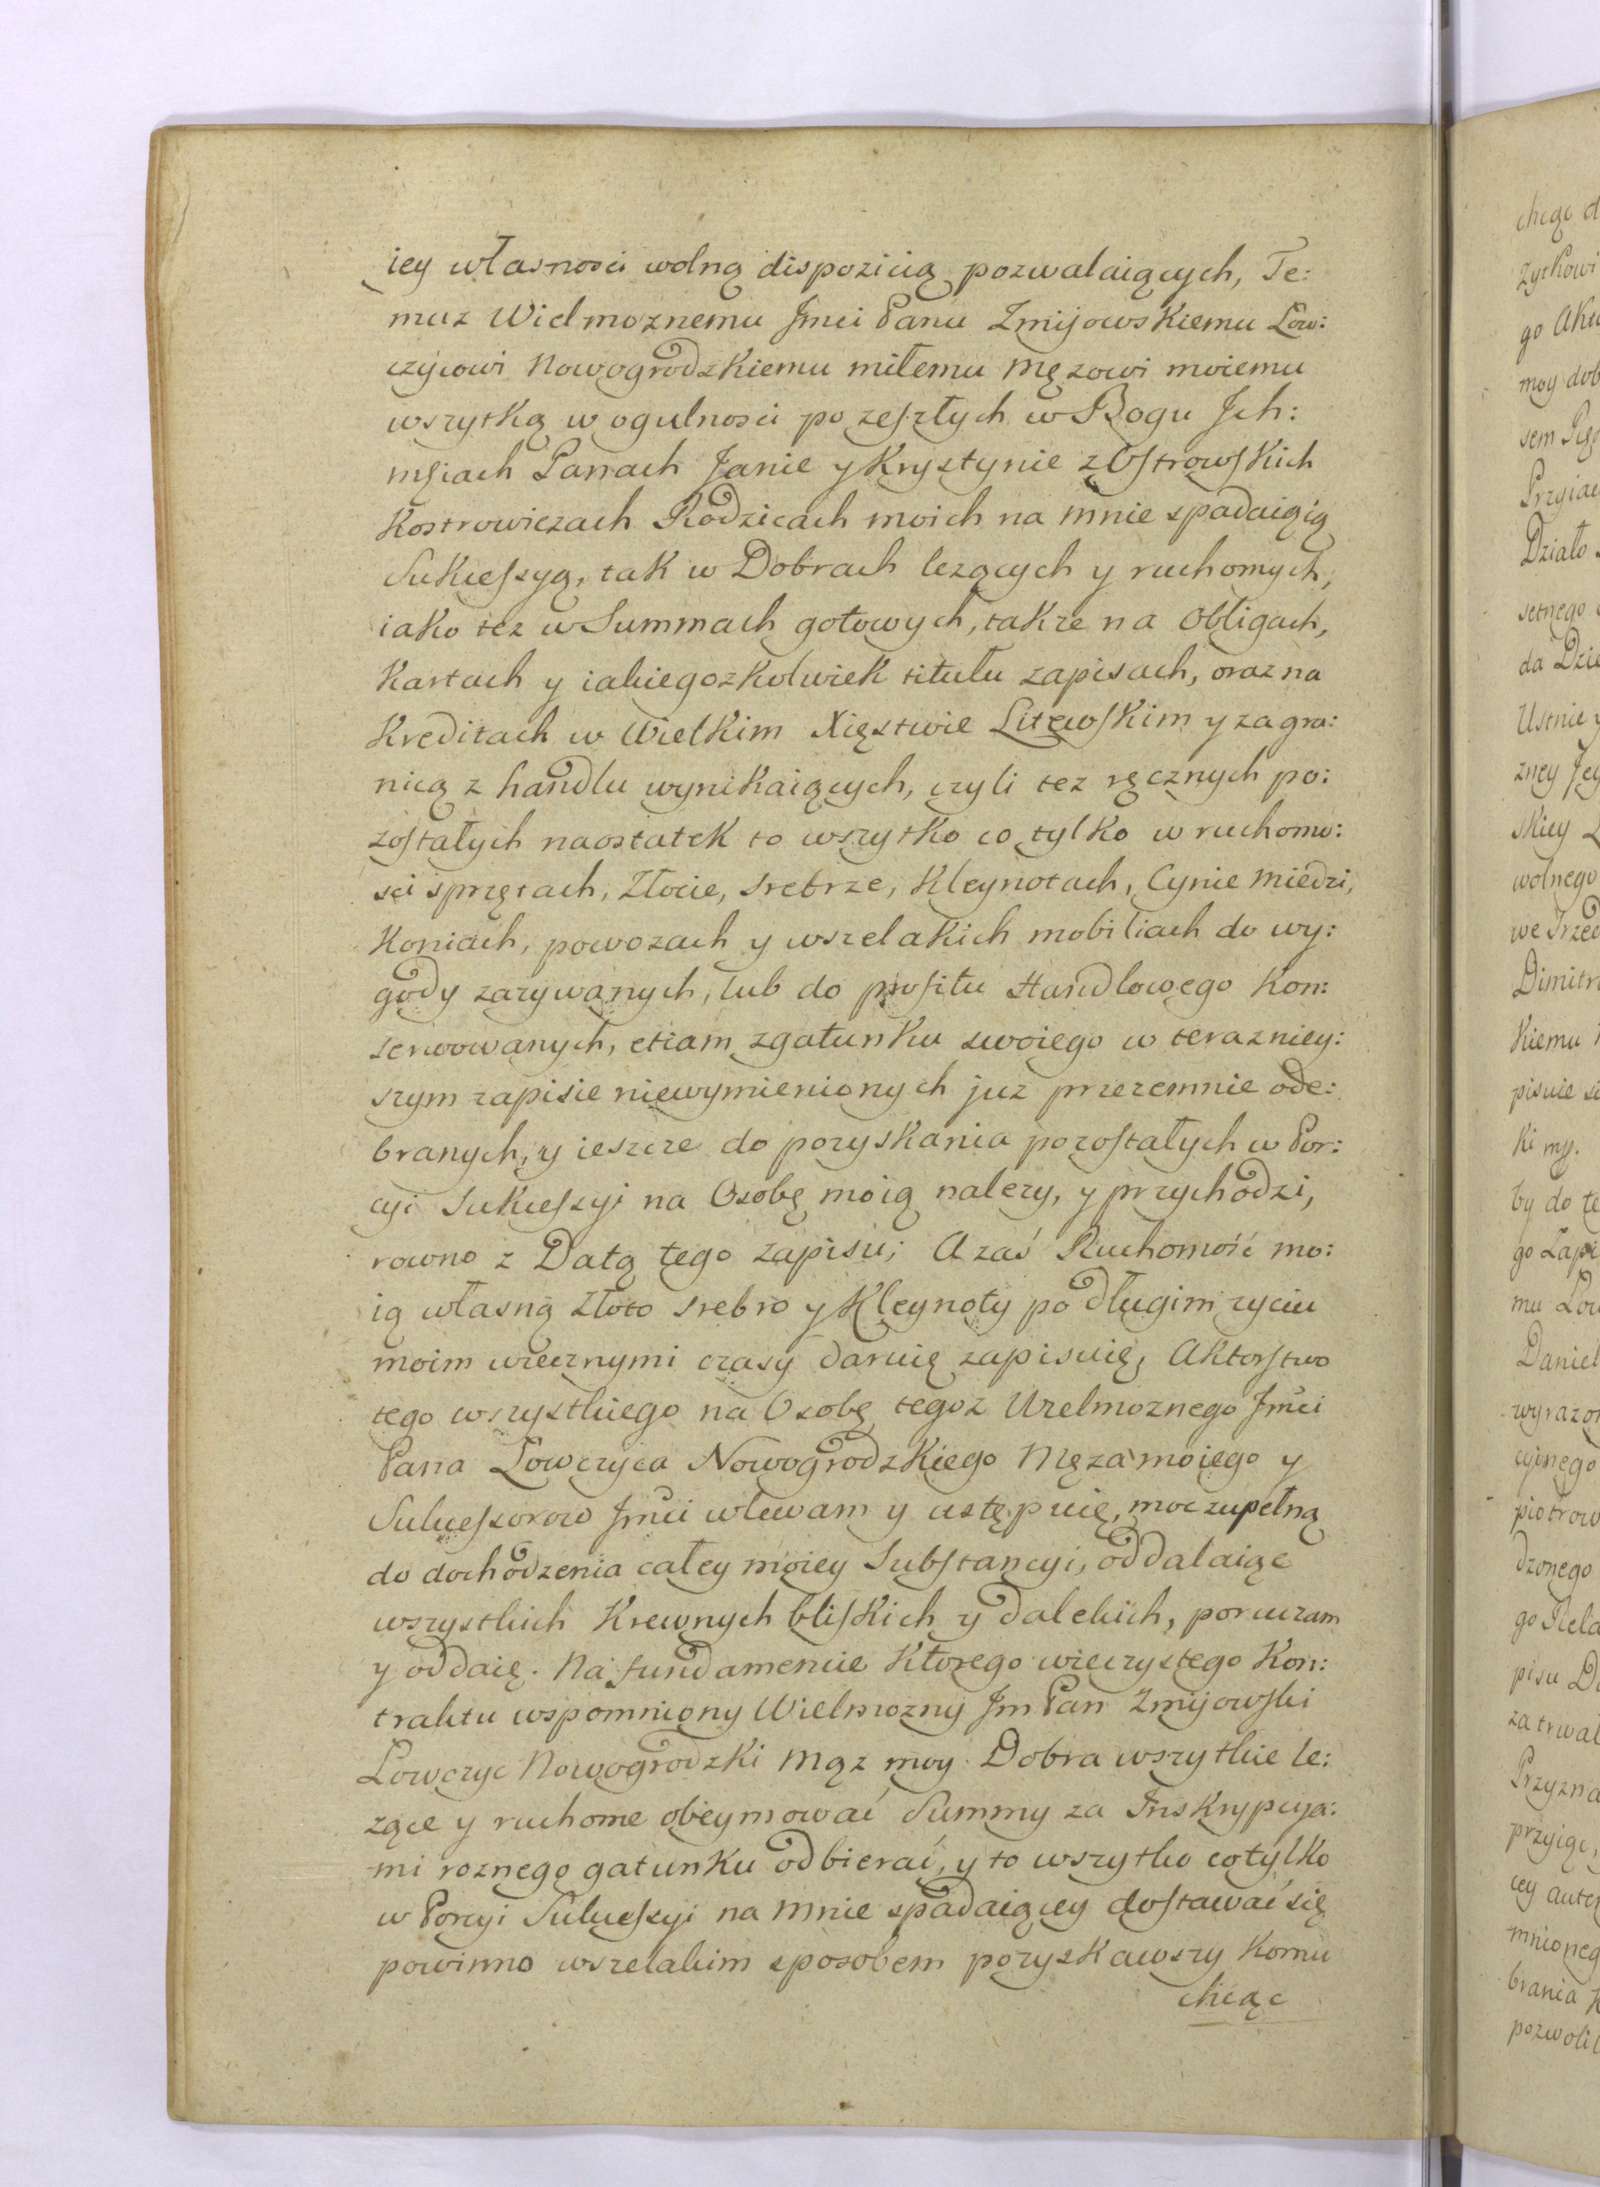 iey własnosci wolną dispozicią pozwalaiących, Te:
muz Wielmoznemu Jmci Panu Zmijowskiemu Łow:
czycowi Nowogrodzkiemu miłemu Męzowi moiemu
wszytką w ogulnosci po zeszłych w Bogu Jch:
msciach Panach Janie y Krystynie z Ostrowskich
Kostrowiczach Rodzicach moich na mnie spadaiącą
Sukcessyą, tak w Dobrach lezących y ruchomych,
iako tez w Summach gotowych, takze na Obligach,
Kartach y iakiegozkolwiek titułu zapisach, oraz na
Kreditach w Wielkim Xięstwie Litewskim y zagra:
nicą z handlu wynikaiących, czyli tez ręcznych po:
zostałych naostatek to wszytko co tylko w ruchomo:
sci sprzętach, Złocie, Srebrze, Kleynotach, Cynie Miedzi,
Koniach, powozach y wszelakich mobiliach do wy:
gody zazywanych, lub do profitu Handlowego Kon:
serwowanych, etiam zgatunku swoiego w teraznie​y:
szym zapisie niewymienionych juz przezemnie ode:
branych, y ieszcze do pozyskania pozostałych w Por:
cyi Sukcessyi na Osobę moią nalezy, y przychodzi,
rowno z Datą tego zapisu; A zaś Ruchomość mo:
ią własną złoto srebro y Kleynoty po długim zyciu
moim wiecznymi czasy daruię zapisuię, Aktorstwo
tego wszystkiego na Osobę tegoz Wielmoznego Jmci
Pana Łowczyca Nowogrodzkiego Męza moiego y
Sukcessorow Jmci wlewam y ustępuię, moc zupełną
do dochodzenia całey moiey Substancyi, oddalaiąc
wszystkich Krewnych bliskich y dalekich, poruczam
y oddaię. Na fundamencie Ktorego wieczystego Kon:
traktu wspomniony Wielmozny Jm Pan Zmijowski
Łowczyc Nowogrodzki Mąz moy Dobra wszytkie le:
zące y ruchome obeymować Summy za Inskrypcya:
mi roznego gatunku odbierać, y to wszytko co tylko
w Porcyi Sukcessyi na mnie spadaiącey dostawać się
powinno wszelakim sposobem pozyskawszy Komu
chcąc
chcąc d
zytkowi
go Aktu
moy dob
sem
Przyiac
Działo
setnego
da Dzie
Ustnie y
zney Jey
skiey
wolnego
we
Dimitr
Kiemu
pisuie
Ki
by do te
go Zapi
mu Łow
Daniel
wyrazon
cyinego
piotrow
dzonego
go Rela
pisu D
za trwał
Przyzna
przyiąć,
cey auten
mnioneg
brania
pozwolił